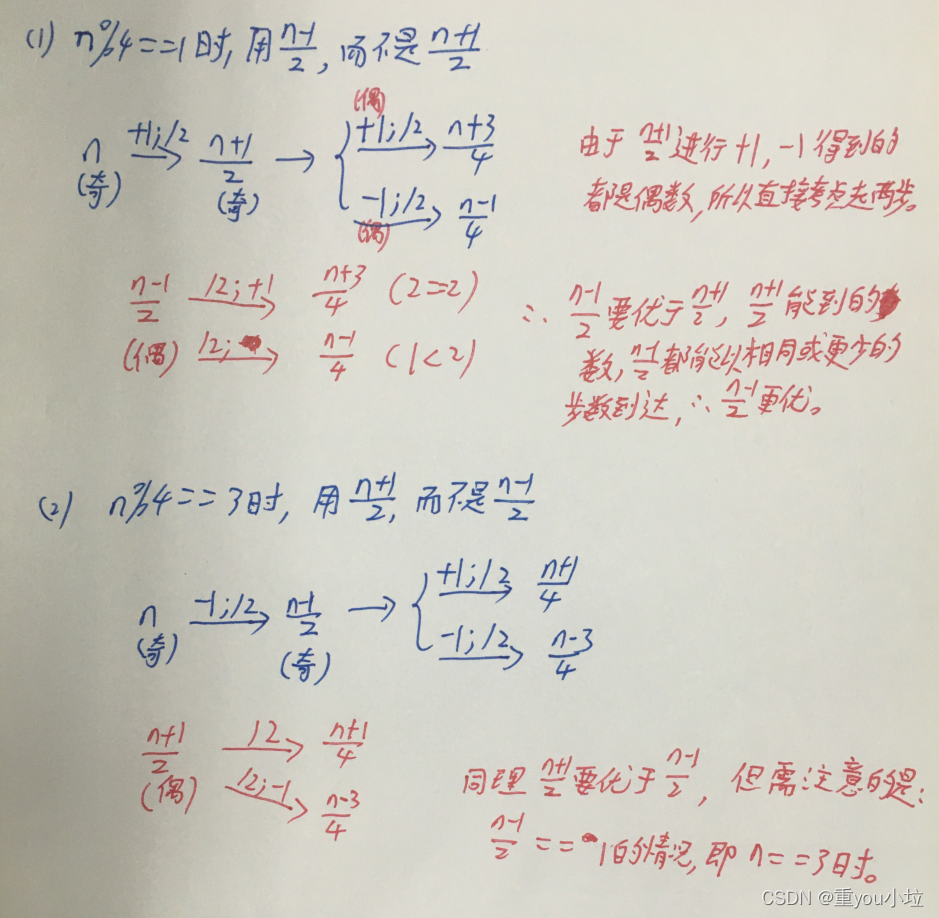 (1) n%4==1时, 用 (n-1)/2, 而不是 (n+1)/2
n (奇) +1;/2 → (n+1)/2 (奇) → { (偶) +1;/2 → (n+3)/4
-1;/2 (偶) → (n-1)/4
由于 (n+1)/2 进行 +1, -1 得到的
都是偶数, 所以直接考虑走两步。
(n-1)/2 (偶) /2;+1 → (n+3)/4 (2=2)
/2; → (n-1)/4 (1<2)
∴ (n-1)/2 要优于 (n+1)/2, (n+1)/2 能到的
数, (n-1)/2 都能以相同或更少的
步数到达, ∴ (n-1)/2 更优。
(2) n%4==3时, 用 (n+1)/2, 而不是 (n-1)/2
n (奇) -1;/2 → (n-1)/2 (奇) → { +1;/2 → (n+1)/4
-1;/2 → (n-3)/4
(n+1)/2 (偶) /2 → (n+1)/4
/2;-1 → (n-3)/4
同理 (n+1)/2 要优于 (n-1)/2, 但需注意的是:
(n-1)/2 == 1的情况, 即 n==3时。
CSDN @重you小垃